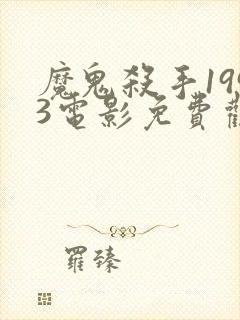 魔鬼殺手199
3電影免費觀
羅臻